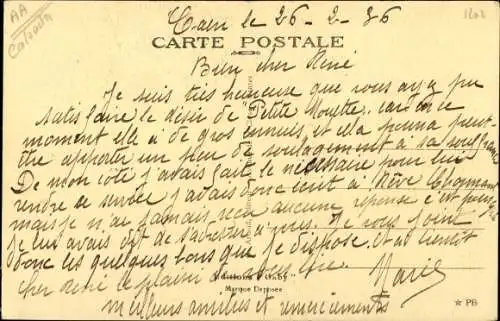 AA
Calvados
Caen le 26-2-36
CARTE POSTALE
Bien cher René
Je suis très heureuse que vous ayez pu
satisfaire le désir de "Petite Mouette" car en ce
moment elle a de gros ennuis, et cela pourra peut
être apporter un peu de soulagement à sa souffrance
De mon côté j'avais fait le nécessaire pour lui
rendre ce service j'avais donc écrit à Rêve
mais je n'ai jamais reçu aucune réponse c'est
je lui avais dit de s'adresser à vous. Je vous joint
donc les quelques bons que je dispose. Et au bientôt
cher René le plaisir de vous lire.
Editions "Gaby"
Marque Déposée
Marie
meilleurs amitiés et remerciements
★ PB